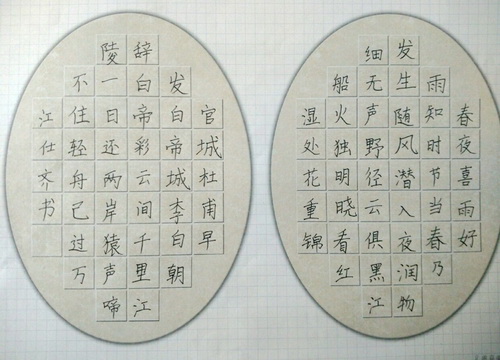 春夜喜雨好
雨知时节当春乃
发生随风潜入夜润物
细无声野径云俱黑江
船火独明晓看红
湿处花重锦
官城杜甫早
发白帝城李白朝
辞白帝彩云间千里江
陵一日还两岸猿声啼
不住轻舟已过万
江仕齐书